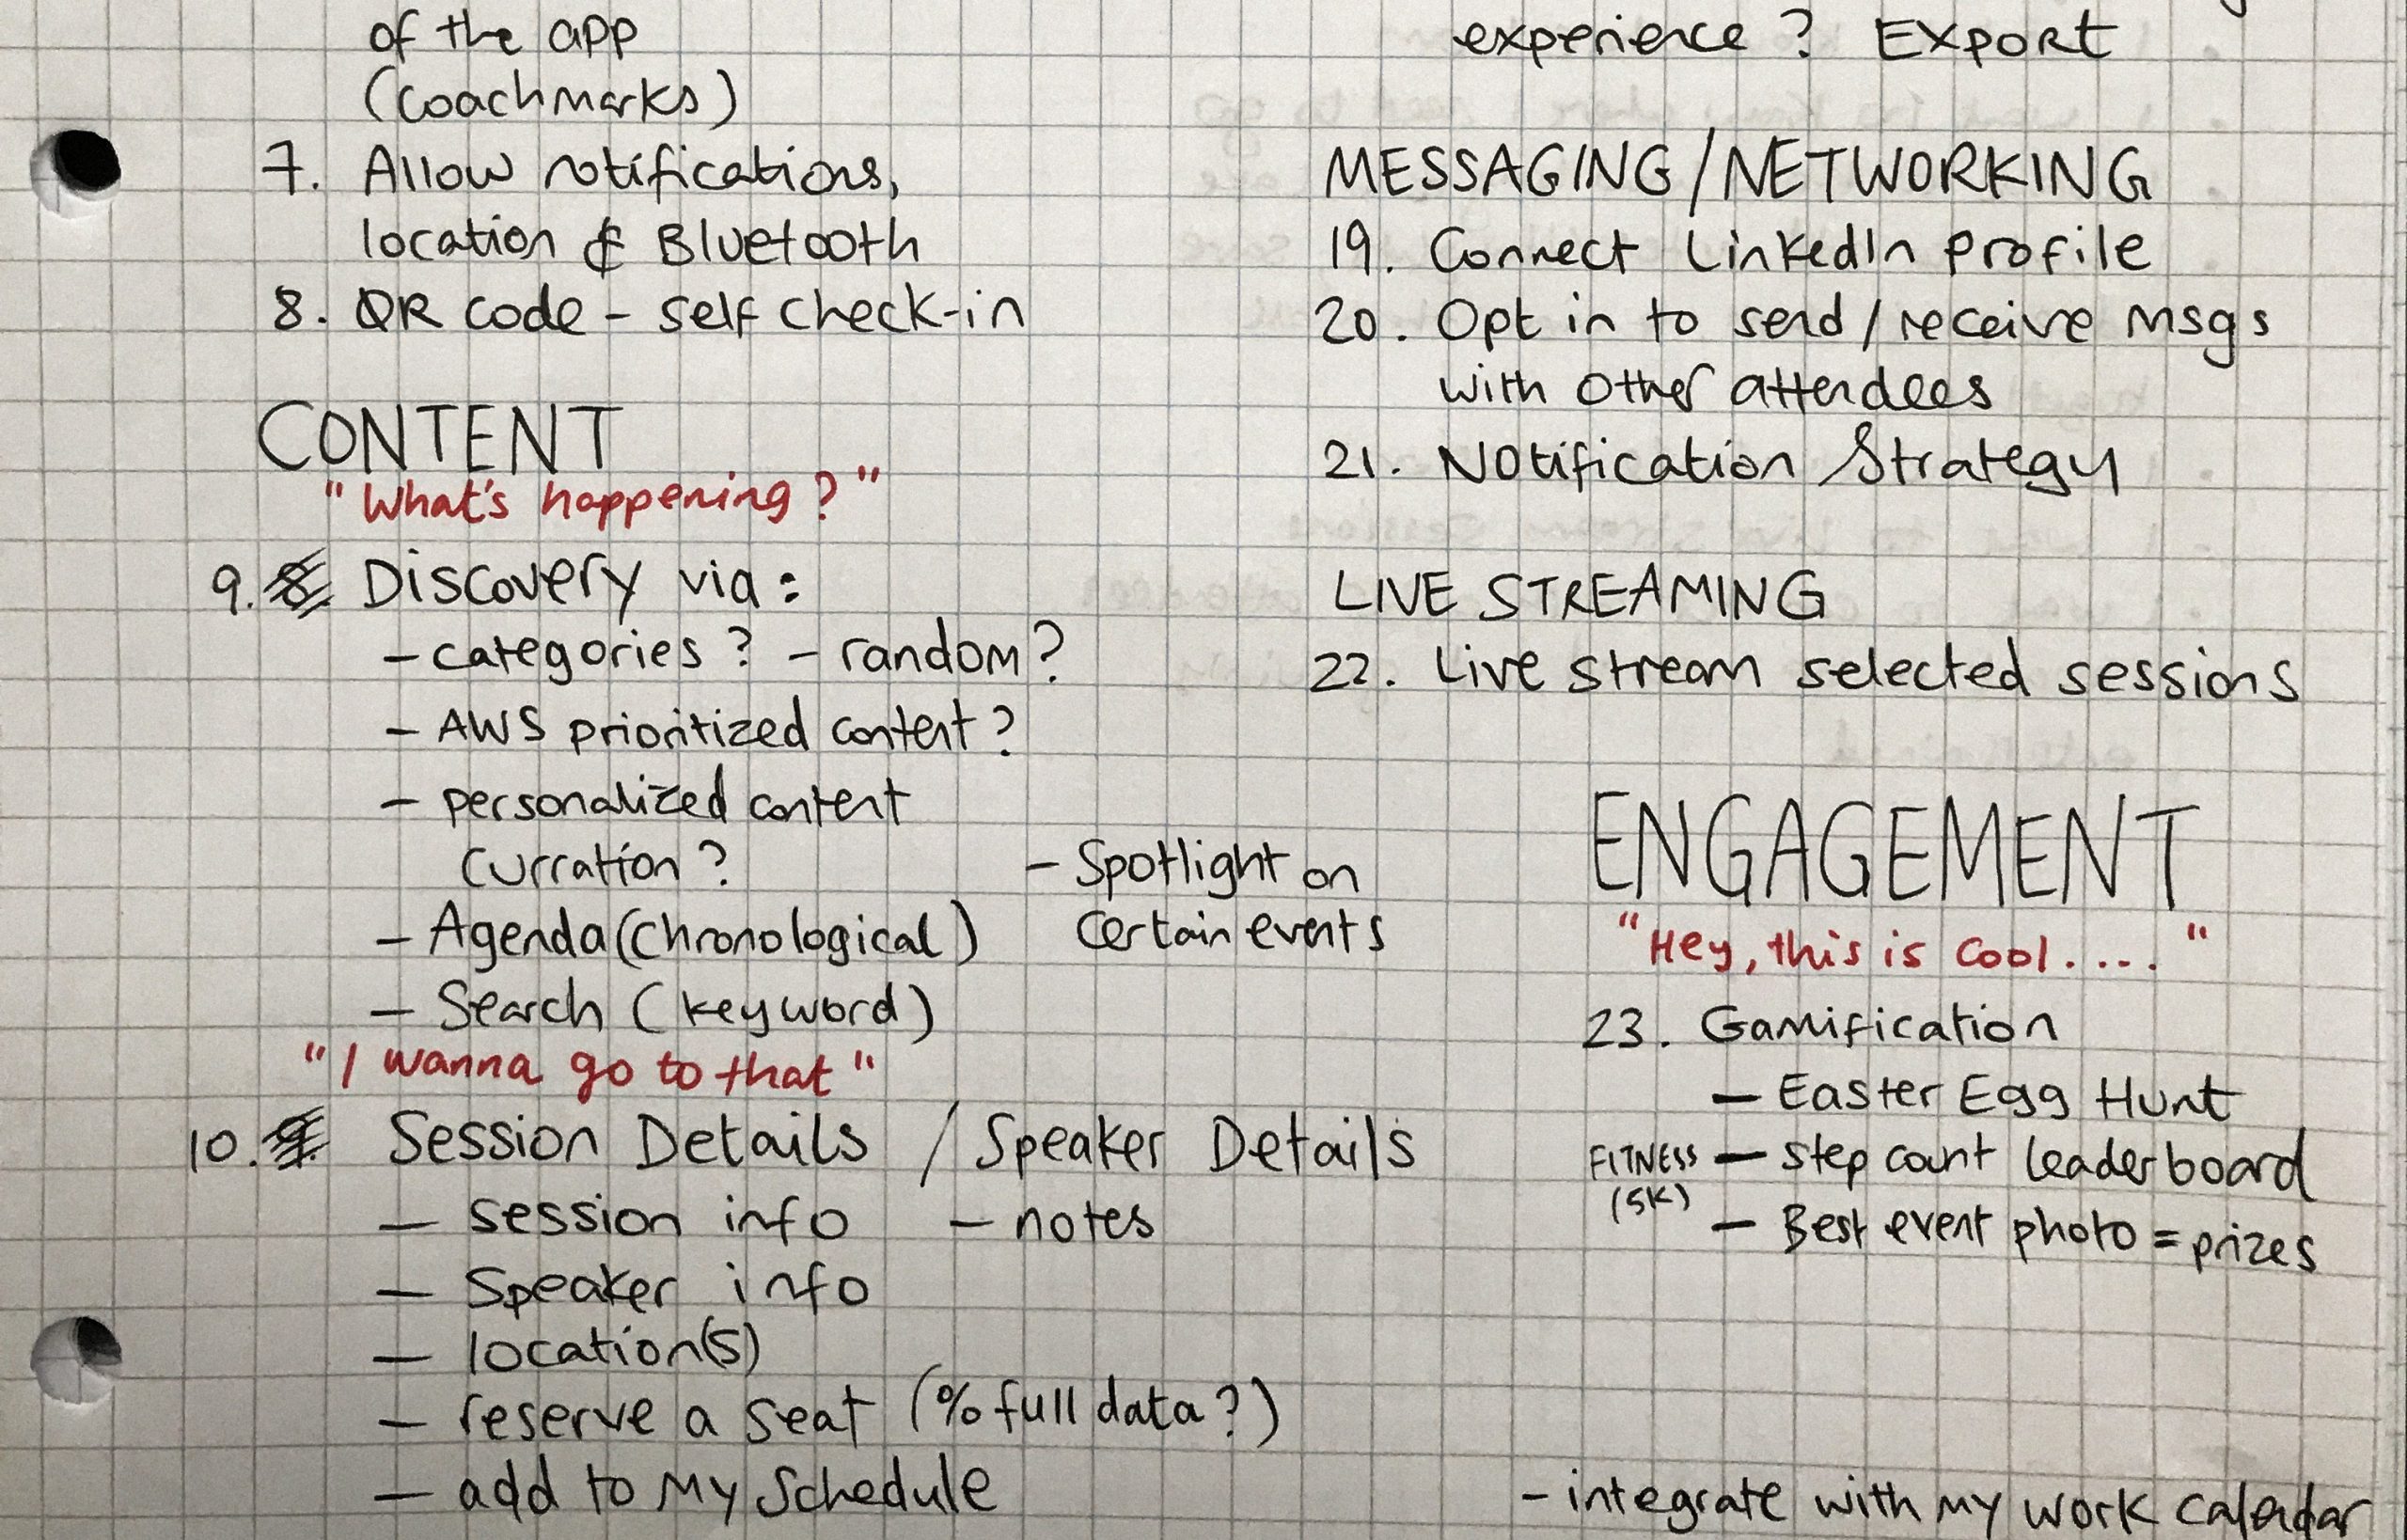 of the app
(coachmarks)
7. Allow notifications,
location & Bluetooth
8. QR code - self check-in
CONTENT
"What's happening?"
9. Discovery via:
- categories? - random?
- AWS prioritized content?
- personalized content
curration?
- Spotlight on
certain events
- Agenda (chronological)
- Search (keyword)
"I wanna go to that"
10. Session Details / Speaker Details
- session info - notes
- Speaker info
- location(s)
- reserve a seat (% full data?)
- add to my schedule
experience? Export
MESSAGING/NETWORKING
19. Connect LinkedIn profile
20. Opt in to send/receive msgs
with other attendees
21. Notification Strategy
LIVE STREAMING
22. Live stream selected sessions
ENGAGEMENT
"Hey, this is cool...."
23. Gamification
- Easter Egg Hunt
FITNESS - step count leaderboard
(5K)
- Best event photo = prizes
- integrate with my work calendar